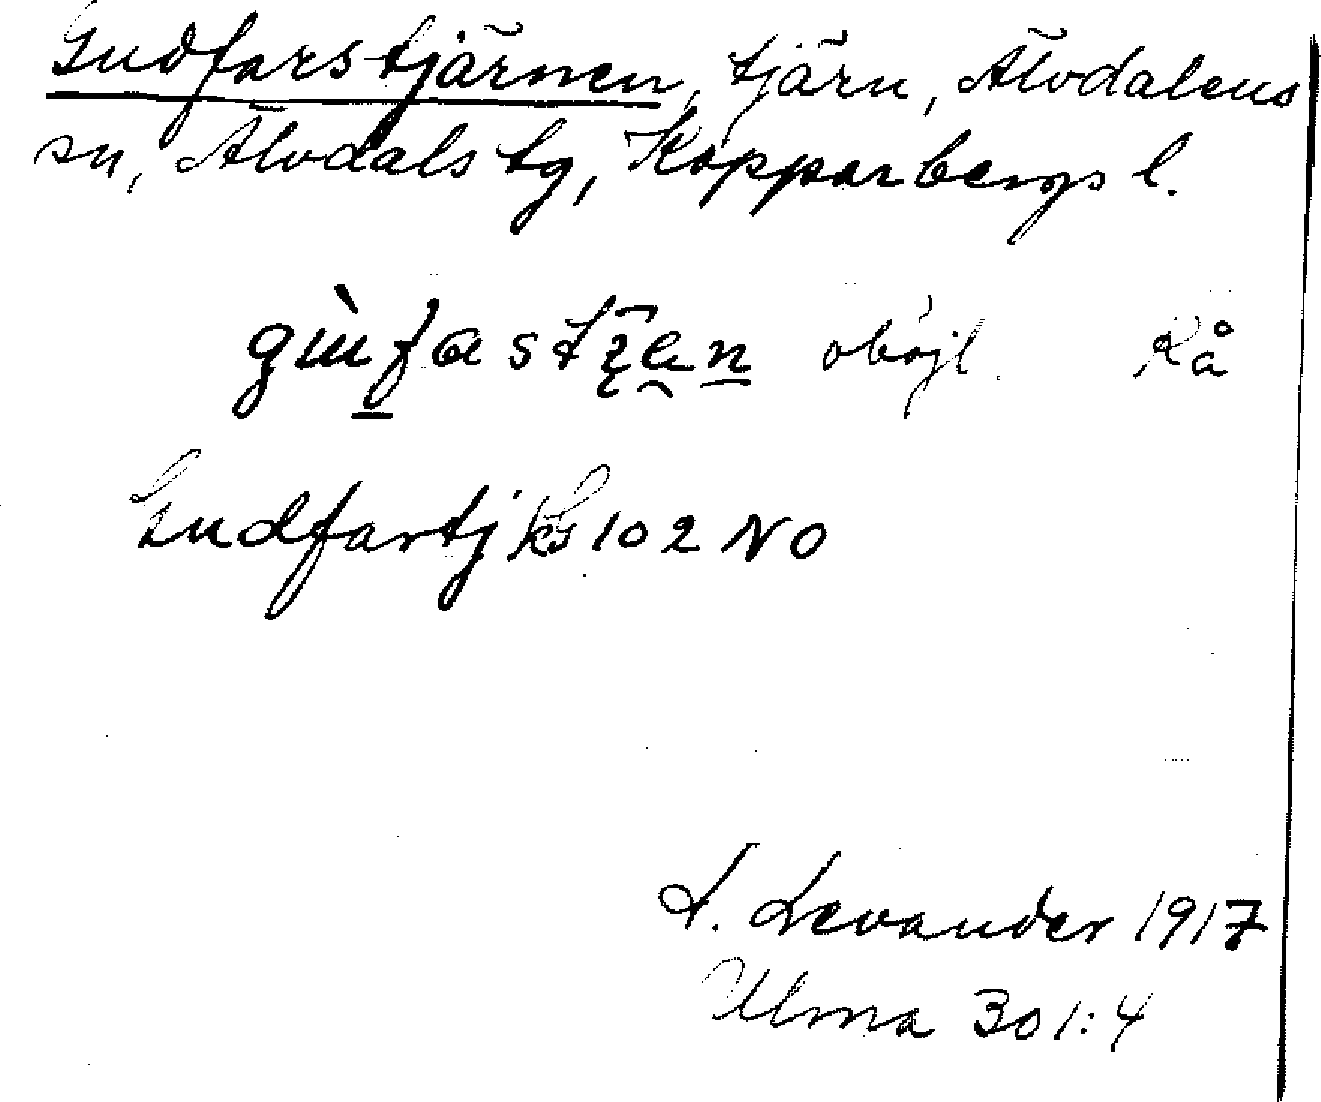 Gudfarstjärnen, tjärn, Älvdalens
sn, Älvdals tg, Kopparbergs l.
obójl. Kå
Gudfartj Kg 102 NO
L. Levander 1917
Ulma 301:4